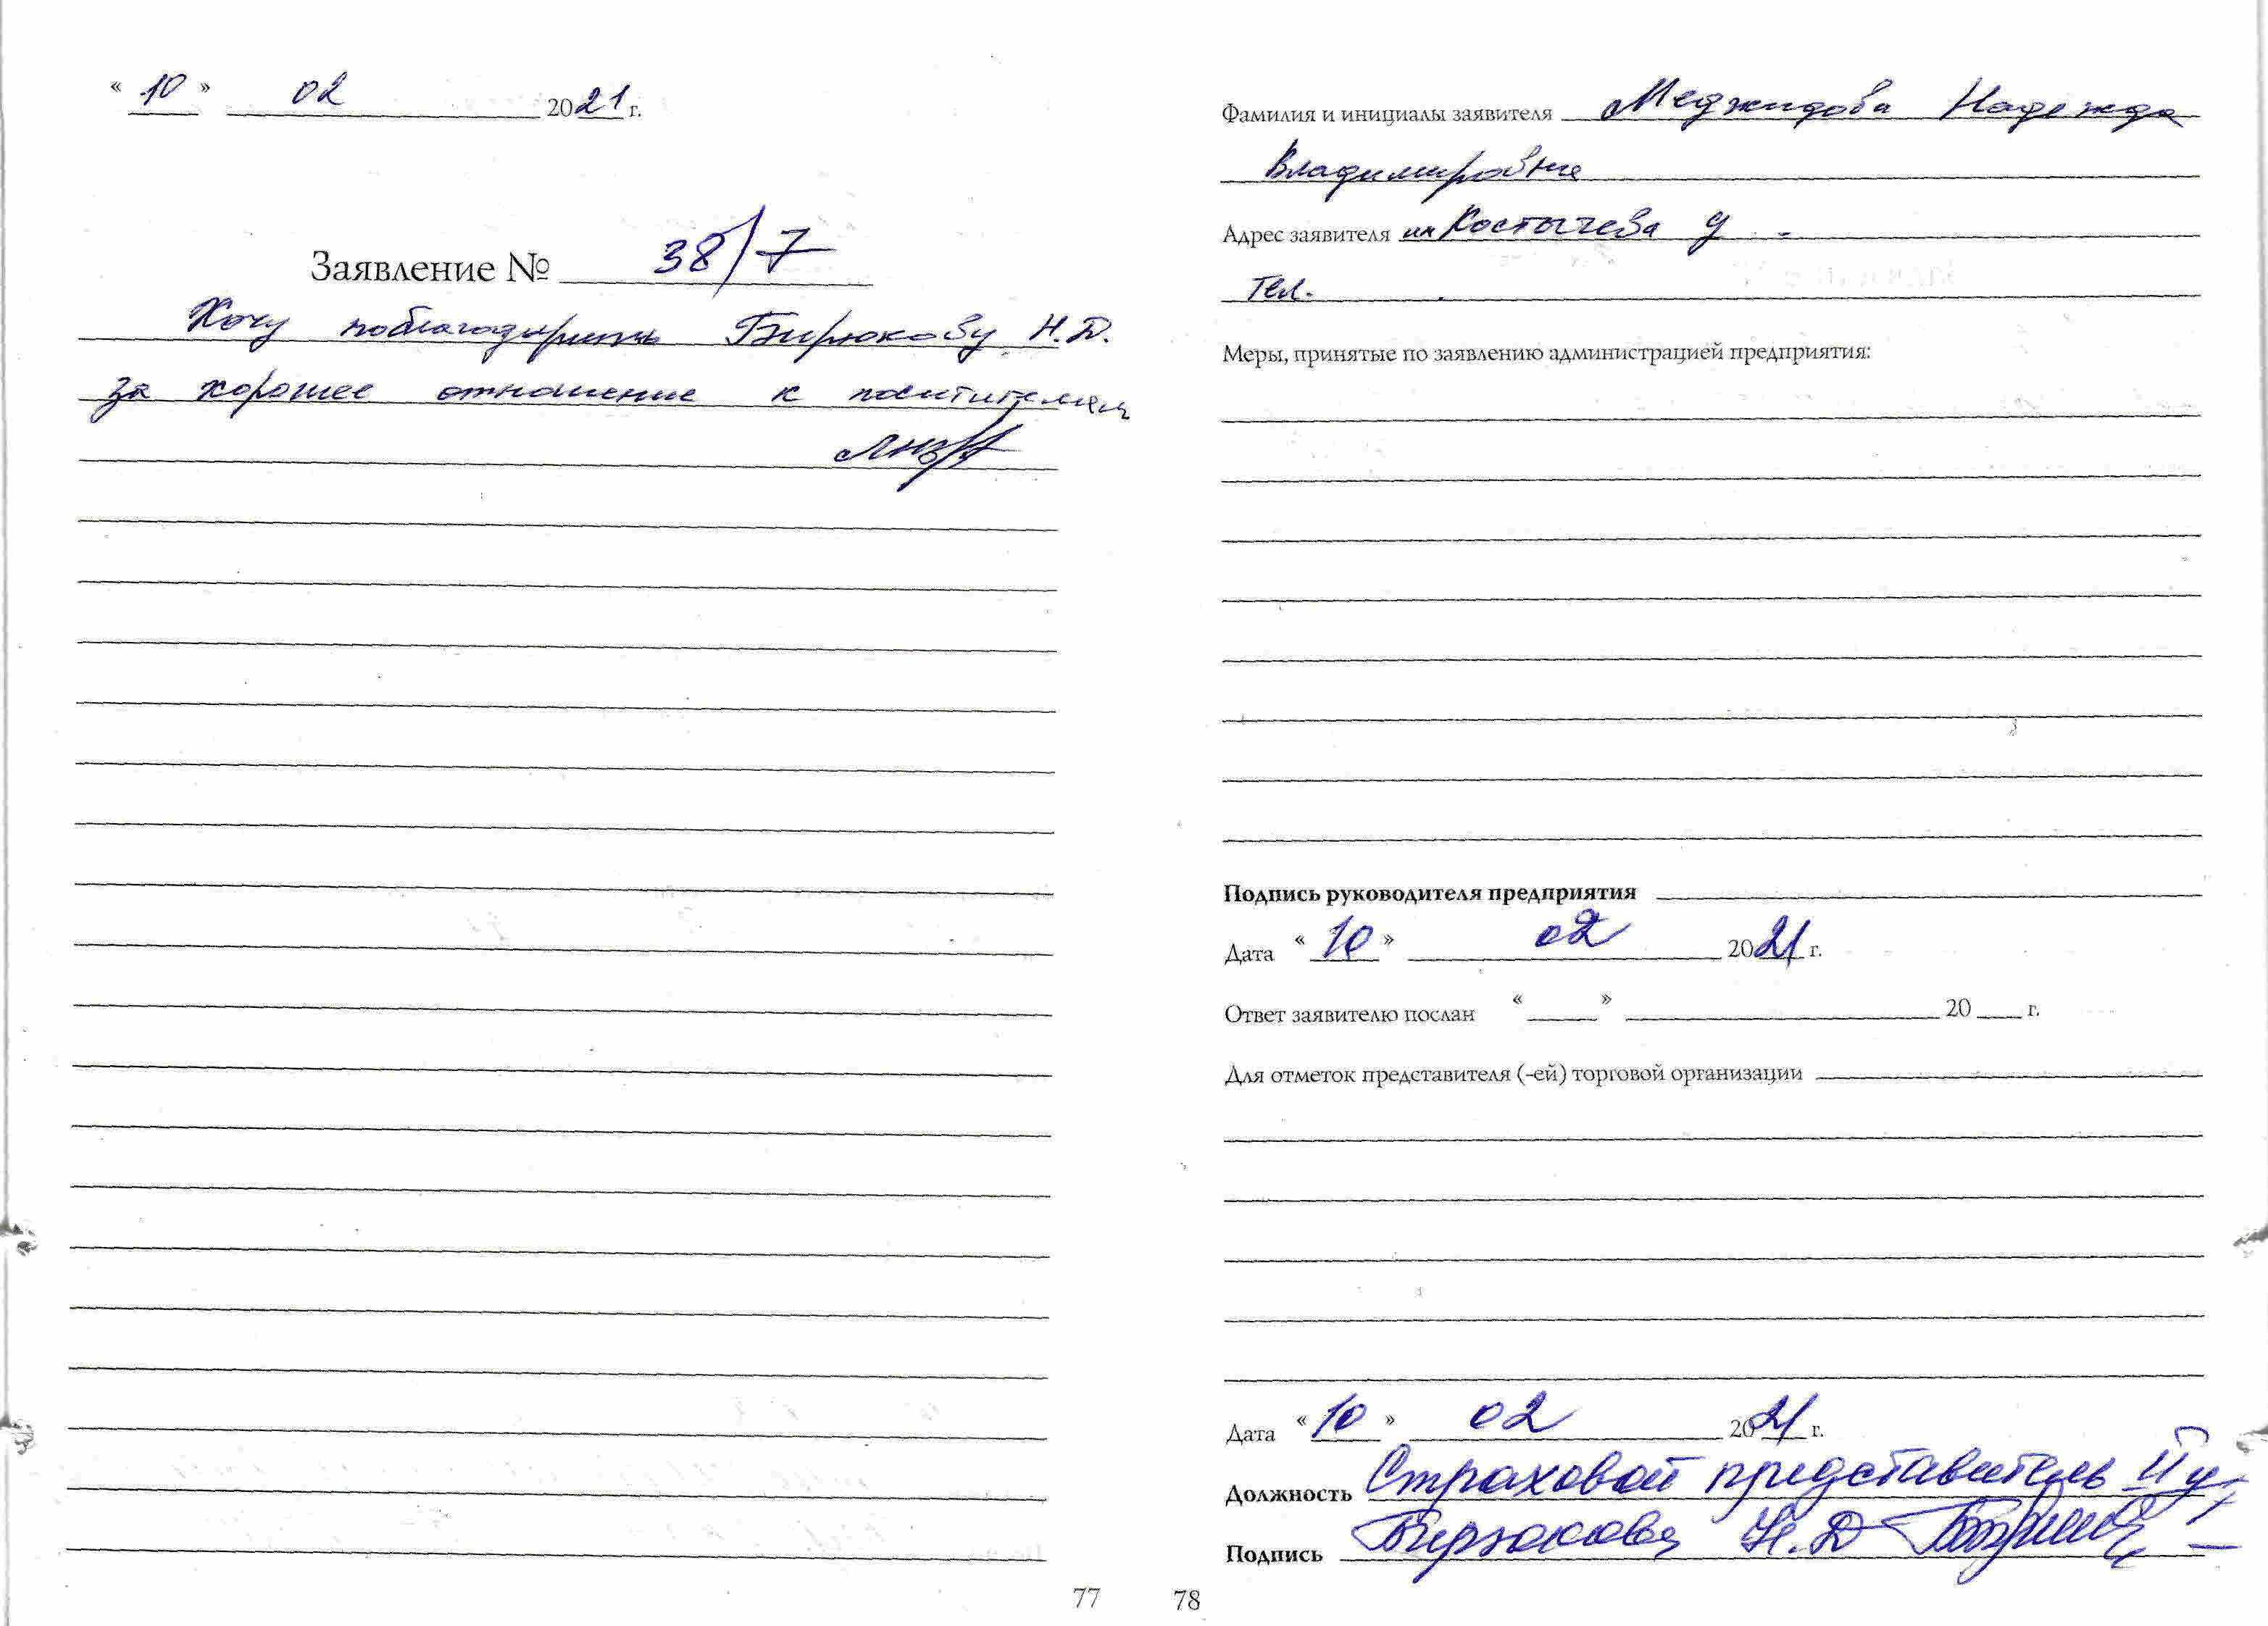 « 10 » 02 2021 г.
Заявление № 38/7
Хочу поблагодарить Бирюкову Н.Д.
за хорошее отношение к
77
Фамилия и инициалы заявителя Меджидова Надежда
Владимировна
Адрес заявителя ул Костычева д -
Тел.
Меры, принятые по заявлению администрацией предприятия:
Подпись руководителя предприятия
Дата « 10 » 02 2021 г.
Ответ заявителю послан « » 20 г.
Для отметок представителя (-ей) торговой организации
Дата « 10 » 02 2021 г.
Должность Страховой представитель
Подпись Бирюкова Н.Д
78